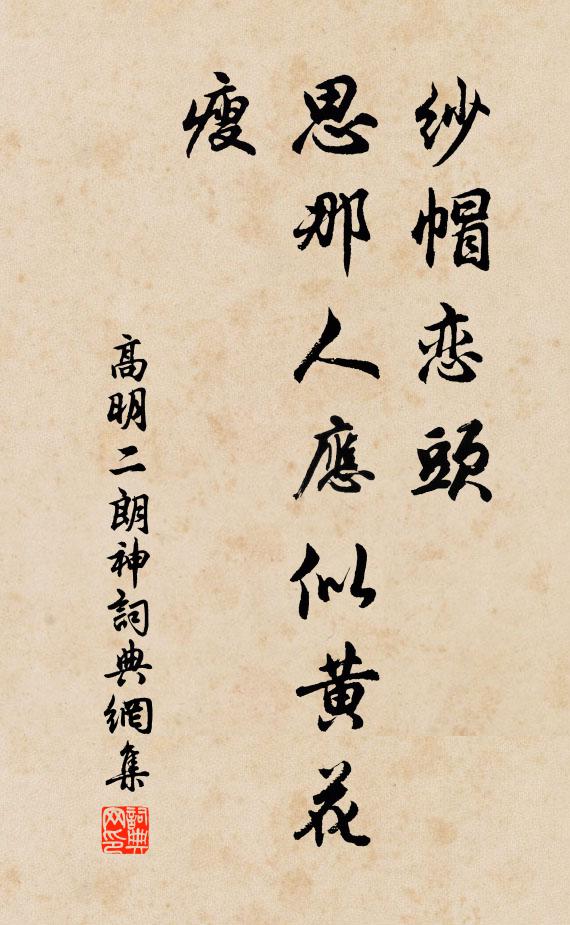 纱帽恋頭
思那人應似黄花
瘦
高明二朗神詞典網集
詞典
网印